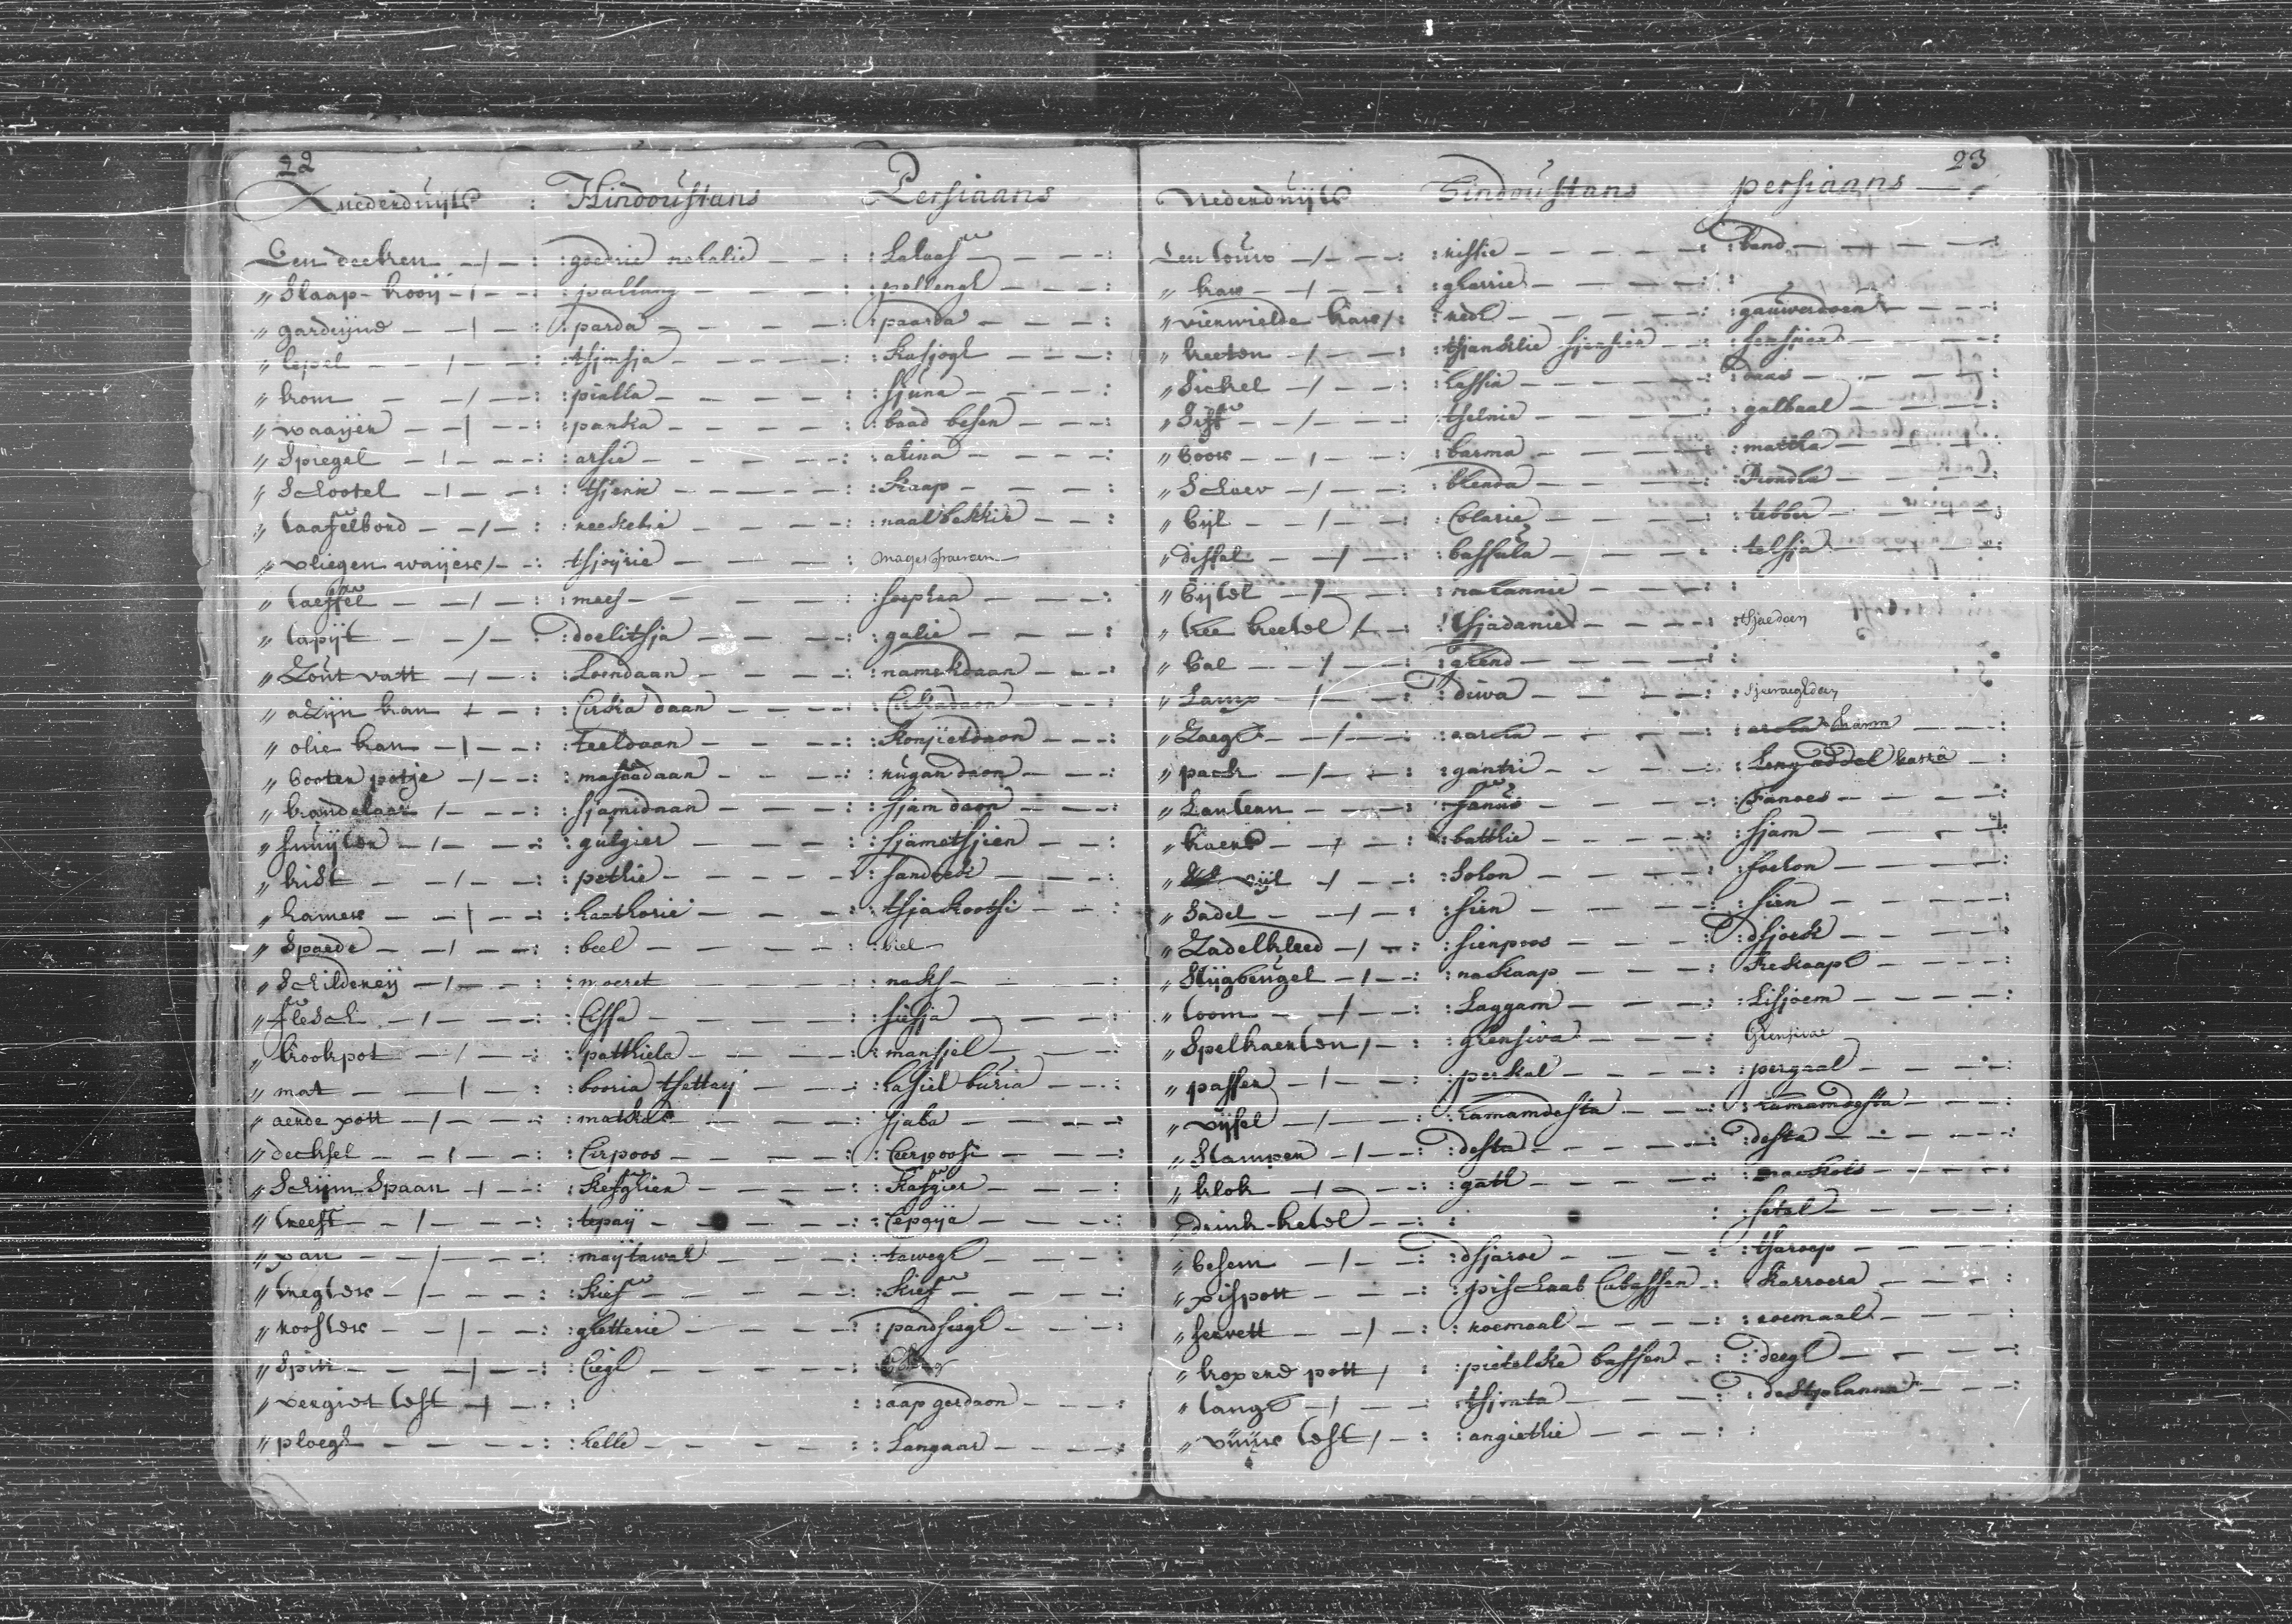 22
Nederduijts : Hindoustans Persiaans
Een deeken : goedrie nehalie : Lahaaf
" Slaap-kooij : pallang : pellengh
" gardijne : parda : paarda
" lepel : tsjimsja : Kasjogh
" kom : pialla : sjúna
" waaijer : panka : baad besen
" Spiegel : arsie : aiina
" Schootel : tsjenie : Kaap
" taaffelbord : reekebie : naalbekkie
" vliegen waijer : tsjoÿrie :
" taeffel : mees : soephra
" tapijt : doelitsja : galie
" Zout vatt : Loendaan : namekdaan
" azijn kan : Cirka daan : Cirkadaon
" olie kan : teeldaan : Konjietdaon
" booter potje : maskadaan : rúgan daon
" kandelaar : sjamidaan : sjam daon
" snuijter : gúlgier : sjametsjien
" kist : pethie : sandoek
" hamer : haethorie : tsjakootsi
" Spaede : beel : biel
" Schilderij : moeret : naks
" flesch : Cissa : siesja
" kookpot : patthiela : mansjel
" mat : booria tsettaij : hasiel búria
" aerde pott : mathe : sjaba
" decksel : Cirpoos : Cerpoosi
" Schijm-Spaan : Kefghier : Kafgier
" treeft : tepaij : Cepaija
" pan : maijtawah : tawegh
" tregter : Kief : Kief
" rooster : ghetterie : pandsiegh
" Spitt : Ciegh :
" vergiet test : : aap gerdaon
" ploegh : helle : Langaar
23
Nederduijts Hindoústans persiaans
Een touw : rissie : bend
" kar : gharrie :
" vierwielde kar : redh : gauwerdoen
" keeten : tsjanklie sjensier : sensjier
" Sickel : hassia : daas
" Sift : tselnie : galbaal
" boor : barma : mattha
" Schaev : blenda : Ronda
" bijl : Colarie : tebber
" dissel : bassúla : telsja
" bijtel : nahannie :
" thee keetel : tsjadanie : tsjaedaen
" bal : ghend :
" Lamp : diwa :
" Zaegh : aarha : arha
" pack : gantri :
" Lantern : fanús : Fanoes
" kaers : batthie : sjam
" vijl : Sohon : soehon
" Sadel : sien : sien
" Zadelkleed : sienpoos : dsjoek
" Stijgbeugel : nakaap : Rekaaph
" toom : Laggam : Lisjoem
" Spelkaerten : ghensiva : Ghensivae
" passer : perkal : pergaal
" vijsel : hamamdesta : hamamdesta
" Stamper : desta : desta
" klok : gath :
" drink-ketel : : setal
" besem : dsjaroe : tsaroep
" pispott : pischaab Cabassen : Karroera
" servett : roemaal : roemaal
" koperd pott : pietelke bassen : deegh
" tangh : tsjimta : destphanna
" vuur test : angiethie :